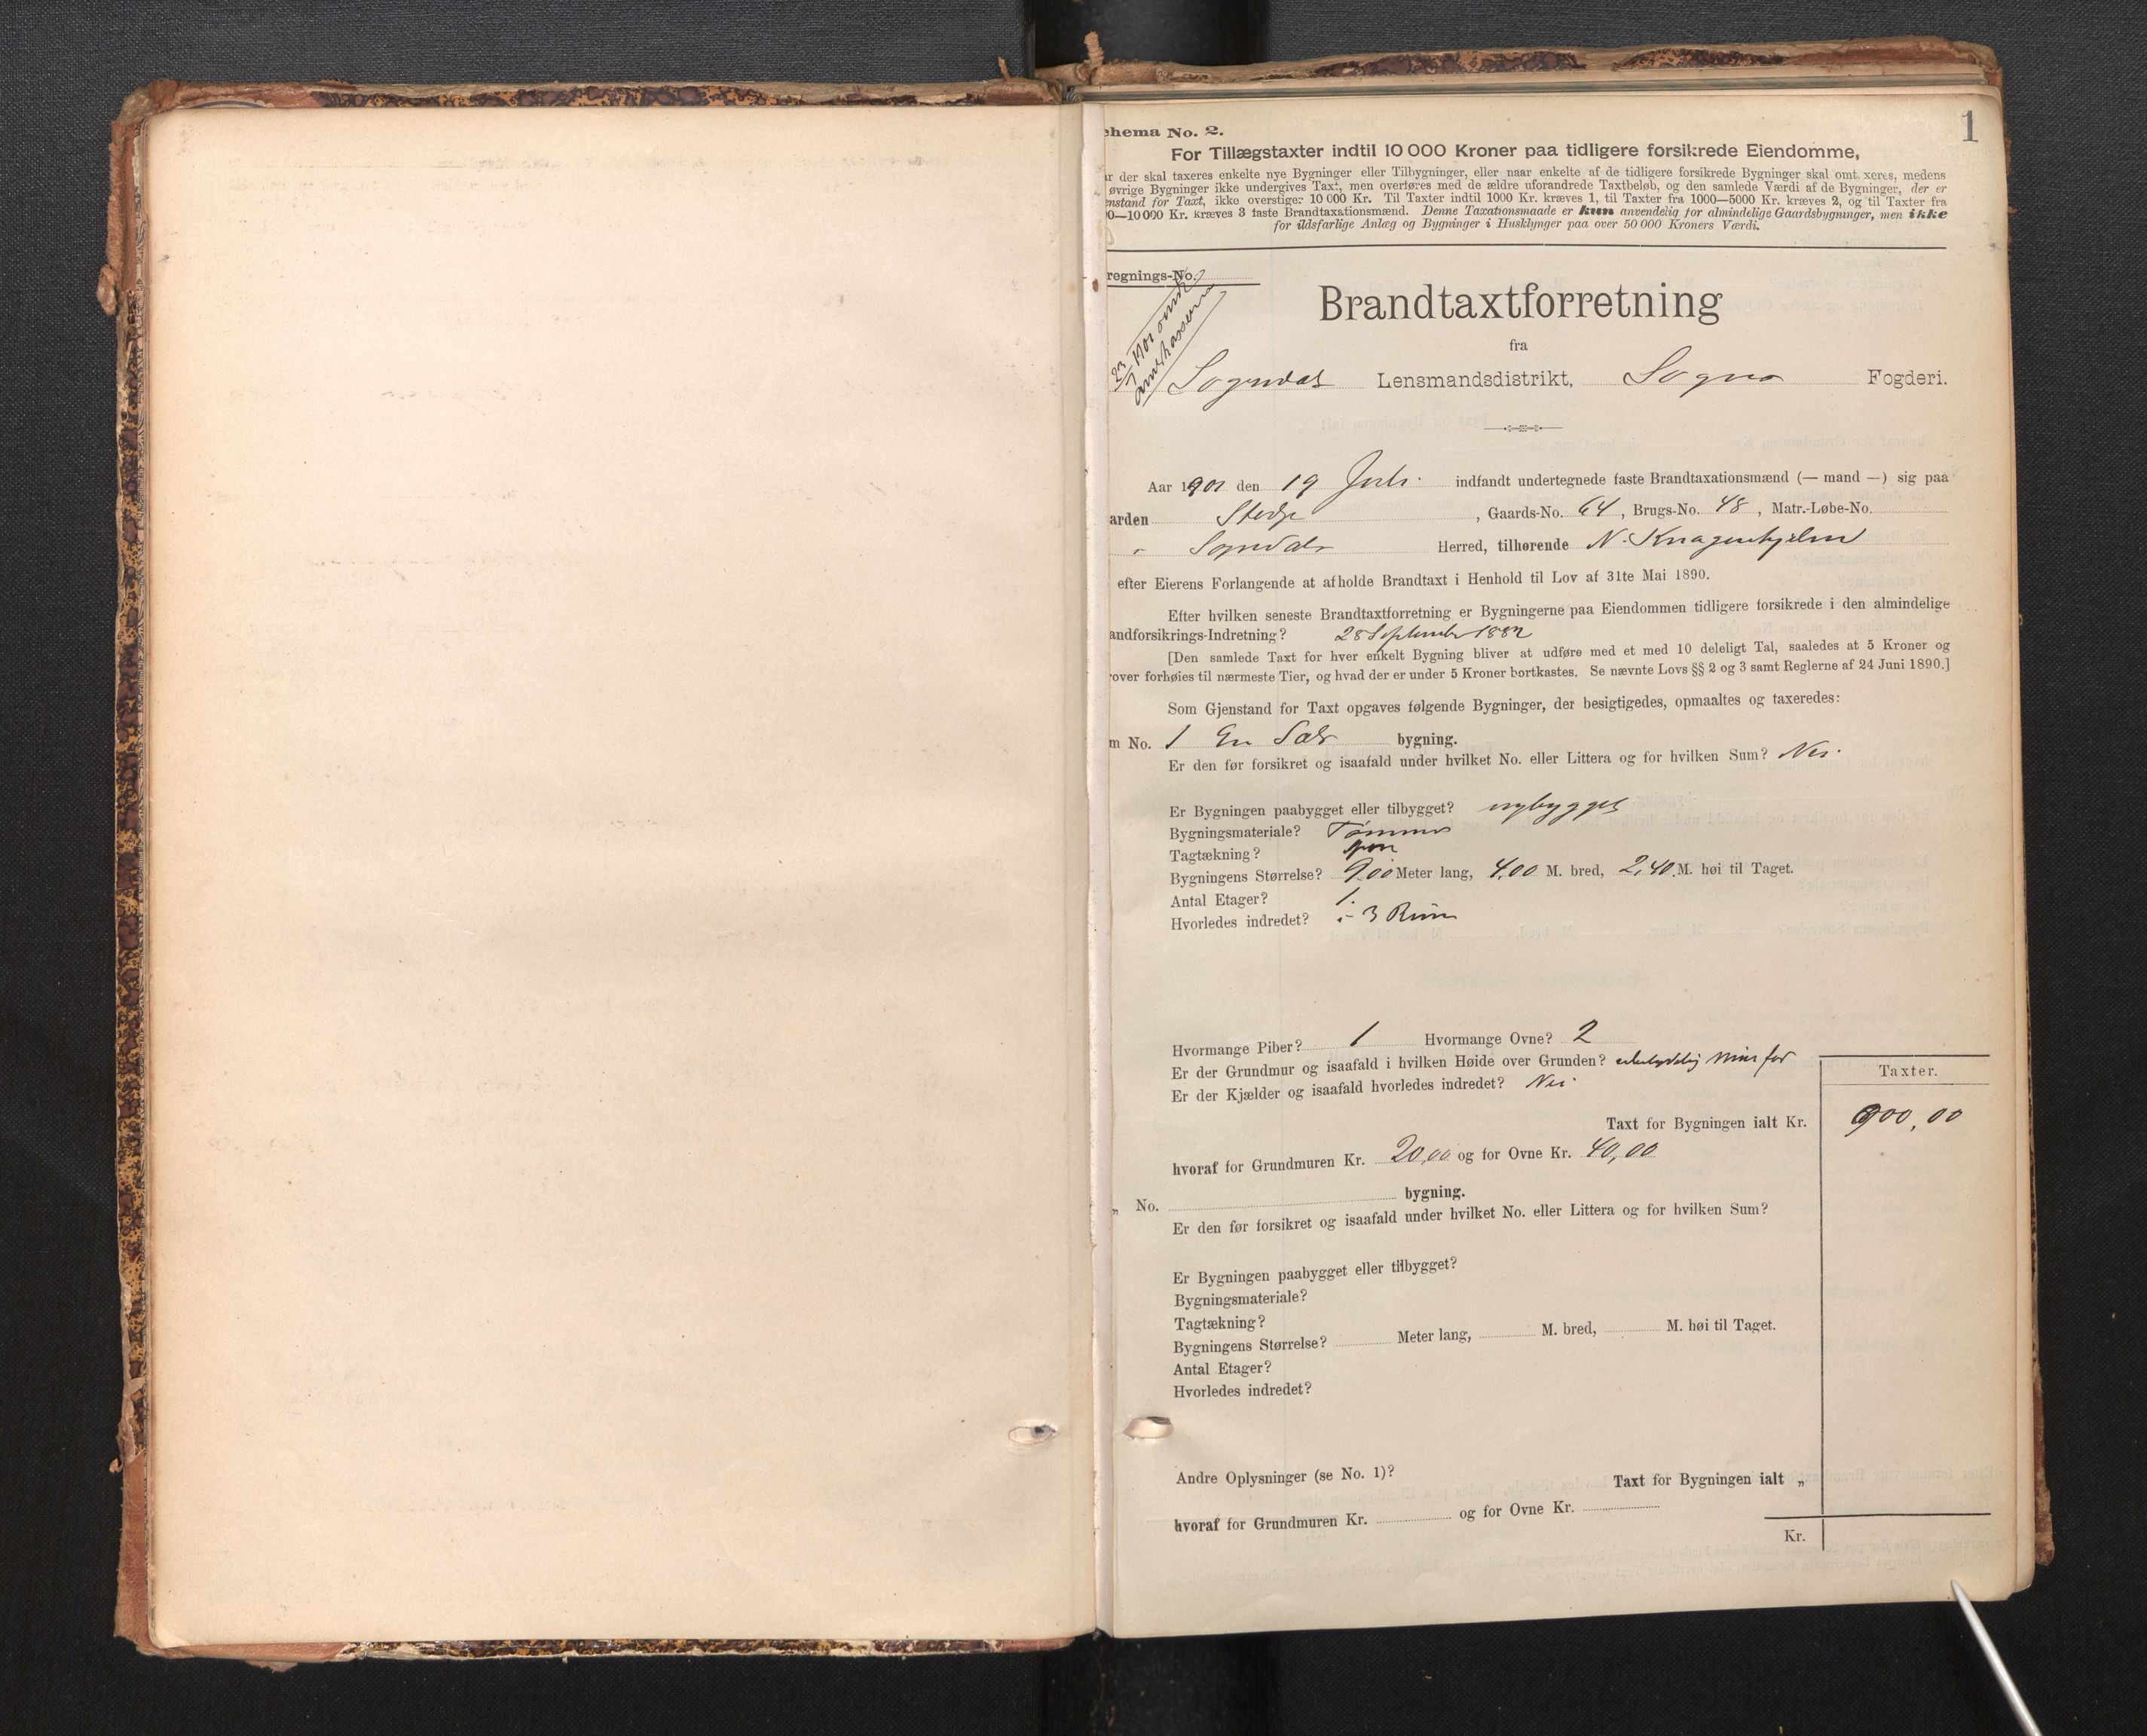 1
chema No. 2.
For Tillægstaxter indtil 10 000 Kroner paa tidligere forsikrede Eiendomme,
r der skal taxeres enkelte nye Bygninger eller Tilbygninger, eller naar enkelte af de tidligere forsikrede Bygninger skal omt. xeres, medens
øvrige Bygninger ikke undergives Taxt, men overføres med de ældre uforandrede Taxtbeløb, og den samlede Værdi af de Bygninger, der er
enstand for Taxt, ikke overstiger 10 000 Kr. Til Taxter indtil 1000 Kr. kræves 1, til Taxter fra 1000—5000 Kr. kræves 2, og til Taxter fra
0—10 000 Kr. kræves 3 faste Brandtaxationsmænd. Denne Taxationsmaade er kun anvendelig for almindelige Gaardsbygninger, men ikke
for ildsfarlige Anlæg og Bygninger i Husklynger paa over 50 000 Kroners Værdi.
regnings-No.
23/7 1901
Brandtaxtforretning
fra
Sogndal Lensmandsdistrikt, Sogns Fogderi.
Aar 1901 den 19 Juli indfandt undertegnede faste Brandtaxationsmænd (— mand —) sig paa
arden Stedje, Gaards-No. 64, Brugs-No. 48, Matr.-Løbe-No.
i Sogndals Herred, tilhørende N. Knagenhjelm
efter Eierens Forlangende at afholde Brandtaxt i Henhold til Lov af 31te Mai 1890.
Efter hvilken seneste Brandtaxtforretning er Bygningerne paa Eiendommen tidligere forsikrede i den almindelige
andforsikrings-Indretning? 28 September 1882
[Den samlede Taxt for hver enkelt Bygning bliver at udføre med et med 10 deleligt Tal, saaledes at 5 Kroner og
over forhøies til nærmeste Tier, og hvad der er under 5 Kroner bortkastes. Se nævnte Lovs §§ 2 og 3 samt Reglerne af 24 Juni 1890.]
Som Gjenstand for Taxt opgaves følgende Bygninger, der besigtigedes, opmaaltes og taxeredes:
m No. 1 En Sels bygning.
Er den før forsikret og isaafald under hvilket No. eller Littera og for hvilken Sum? Nei.
Er Bygningen paabygget eller tilbygget? nybygget
Bygningsmateriale? Tømmer
Tagtækning? spon
Bygningens Størrelse? 9.00 Meter lang, 4,00 M. bred, 2,40 M. høi til Taget.
Antal Etager? 1.
Hvorledes indredet? i 3 Rum
Hvormange Piber? 1 Hvormange Ovne? 2
Er der Grundmur og isaafald i hvilken Høide over Grunden? ubetydelig Mur for
Er der Kjælder og isaafald hvorledes indredet? Nei.
Taxter.
Taxt for Bygningen ialt Kr. 900,00
hvoraf for Grundmuren Kr. 20,00 og for Ovne Kr. 40,00
„ No. bygning.
Er den før forsikret og isaafald under hvilket No. eller Littera og for hvilken Sum?
Er Bygningen paabygget eller tilbygget?
Bygningsmateriale?
Tagtækning?
Bygningens Størrelse? Meter lang, M. bred, M. høi til Taget.
Antal Etager?
Hvorledes indredet?
Andre Oplysninger (se No. 1)? Taxt for Bygningen ialt „
hvoraf for Grundmuren Kr. og for Ovne Kr.
Kr.